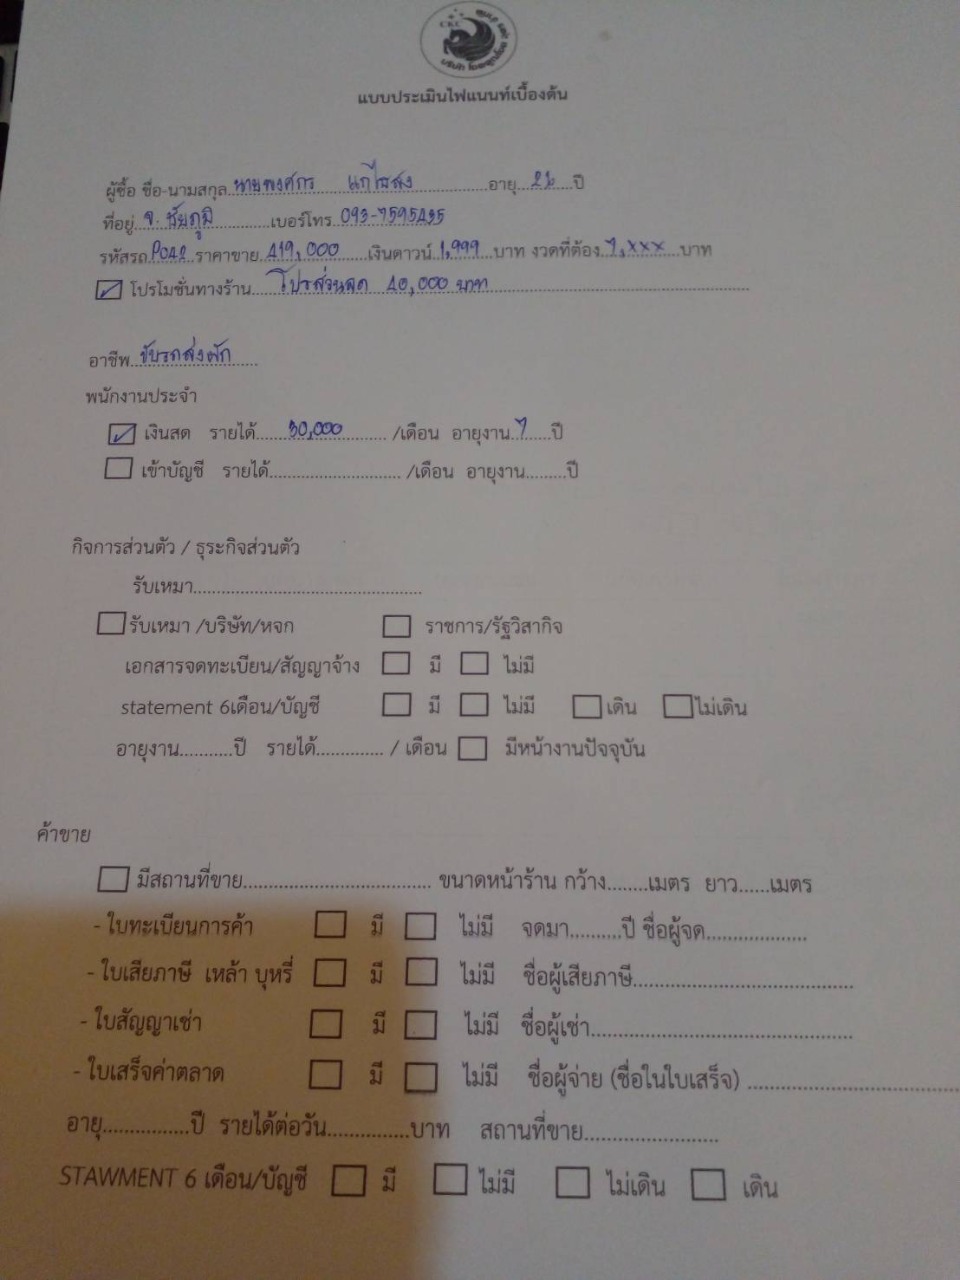 CKC
แบบประเมินไฟแนนท์เบื้องต้น
ผู้ซื้อ ชื่อ-นามสกุล นายพงศกร แก้ไธสง อายุ 26 ปี
ที่อยู่ จ. ชัยภูมิ เบอร์โทร 093-7595435
รหัสรถ ราคาขาย 419,000 เงินดาวน์ 1,999 บาท งวดที่ต้อง 7,xxx บาท
โปรโมชั่นทางร้าน โปรส่วนลด 40,000 บาท
อาชีพ ขับรถส่งผัก
พนักงานประจำ
เงินสด รายได้ 30,000 /เดือน อายุงาน 7 ปี
เข้าบัญชี รายได้ /เดือน อายุงาน ปี
กิจการส่วนตัว / ธุระกิจส่วนตัว
รับเหมา
รับเหมา /บริษัท/หจก ราชการ/รัฐวิสากิจ
เอกสารจดทะเบียน/สัญญาจ้าง มี ไม่มี
statement 6เดือน/บัญชี มี ไม่มี เดิน ไม่เดิน
อายุงาน ปี รายได้ / เดือน มีหน้างานปัจจุบัน
ค้าขาย
มีสถานที่ขาย ขนาดหน้าร้าน กว้าง เมตร ยาว เมตร
- ใบทะเบียนการค้า มี ไม่มี จดมา ปี ชื่อผู้จด
- ใบเสียภาษี เหล้า บุหรี่ มี ไม่มี ชื่อผู้เสียภาษี
- ใบสัญญาเช่า มี ไม่มี ชื่อผู้เช่า
- ใบเสร็จค่าตลาด มี ไม่มี ชื่อผู้จ่าย (ชื่อในใบเสร็จ)
อายุ ปี รายได้ต่อวัน บาท สถานที่ขาย
STAWMENT 6 เดือน/บัญชี มี ไม่มี ไม่เดิน เดิน